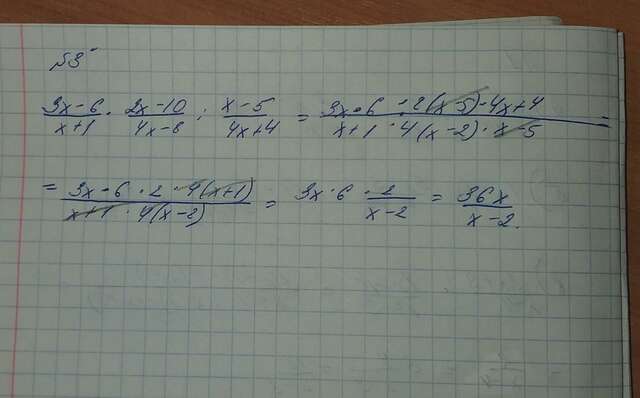 №3
(3x-6)/(x+1) · (2x-10)/(4x-8) : (x-5)/(4x+4) = (3x·6 · 2(x-5)·4x+4)/(x+1 · 4(x-2) · x-5)
= (3x·6 · 2 · 4(x+1))/(x+1 · 4(x-2)) = 3x·6 · 2/(x-2) = 36x/(x-2).